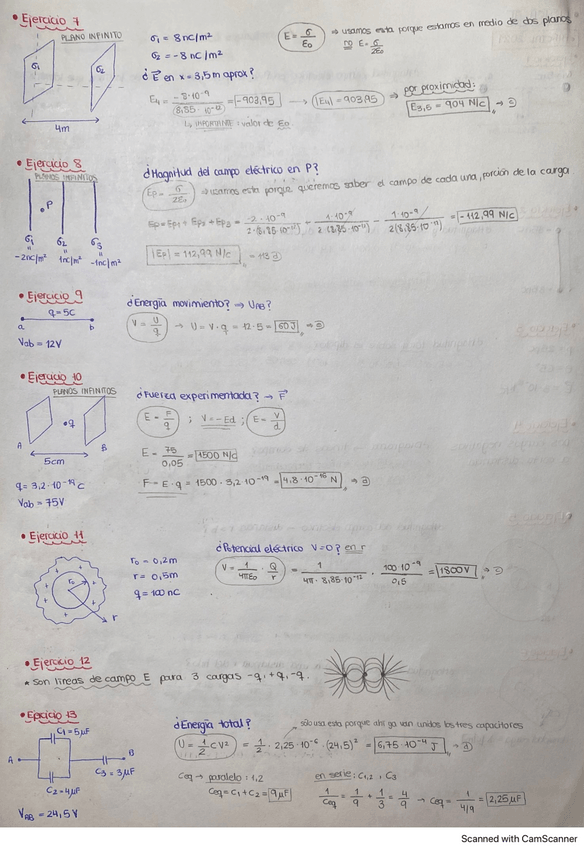 • Ejercicio 7
PLANO INFINITO
σ₁ σ₂
4m
σ₁ = 8nC/m²
σ₂ = -8nC/m²
¿ E⃗ en x = 3,5m aprox?
E = σ/ε₀ ⇒ usamos esta porque estamos en medio de dos planos
no E = σ/2ε₀
E₁ = -8·10⁻⁹ / (8,85·10⁻¹²) = -903,95 → |E₁| = 903,95 ⇒ por proximidad:
E₃,₅ = 904 N/C
↳ IMPORTANTE: valor de ε₀
• Ejercicio 8
PLANOS INFINITOS
• P
σ₁ σ₂ σ₃
-2nC/m² 1nC/m² -1nC/m²
¿Magnitud del campo eléctrico en P?
Ep = σ/2ε₀ ⇒ usamos esta porque queremos saber el campo de cada una, porción de la carga
Ep = Ep₁ + Ep₂ + Ep₃ = -2·10⁻⁹ / 2·(8,85·10⁻¹²) - 1·10⁻⁹ / 2(8,85·10⁻¹²) - 1·10⁻⁹ / 2(8,85·10⁻¹²) = -112,99 N/C
|Ep| = 112,99 N/C
• Ejercicio 9
q = 5C
a b
Vab = 12V
¿Energía movimiento? → UAB?
V = U/q → U = V·q = 12·5 = 60J
• Ejercicio 10
PLANOS INFINITOS
•q
A B
5cm
q = 3,2·10⁻¹⁹ C
Vab = 75V
¿Fuerza experimentada? → F⃗
E = F/q ; V = -Ed ; E = V/d
E = 75/0,05 = 1500 N/C
F = E·q = 1500·3,2·10⁻¹⁹ = 4,8·10⁻¹⁶ N
• Ejercicio 11
r₀
r
r₀ = 0,2m
r = 0,5m
q = 100nC
¿Potencial eléctrico V=0? en r
V = 1/4πε₀ · Q/r = 1/(4π·8,85·10⁻¹²) · 100·10⁻⁹/0,5 = 1800V
• Ejercicio 12
* son líneas de campo E para 3 cargas -q, +q, -q.
• Ejercicio 13
C₁ = 5μF
A B
C₃ = 3μF
C₂ = 4μF
VAB = 24,5V
¿Energía total?
sólo una esta porque ahí ya van unidos los tres capacitores
U = 1/2 CV² = 1/2 · 2,25·10⁻⁶ · (24,5)² = 6,75·10⁻⁴ J
Ceq → paralelo: 1,2
Ceq = C₁ + C₂ = 9μF
en serie: C₁,₂ , C₃
1/Ceq = 1/9 + 1/3 = 4/9 → Ceq = 1/(4/9) = 2,25μF
Scanned with CamScanner